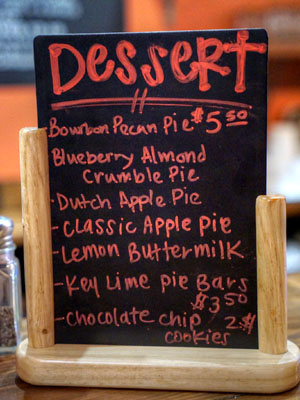 Dessert
Bourbon Pecan Pie $5.50
Blueberry Almond
Crumble Pie
- Dutch Apple Pie
- Classic Apple Pie
- Lemon Buttermilk
- Key Lime Pie Bars
$3.50
- Chocolate Chip 2.$
Cookies